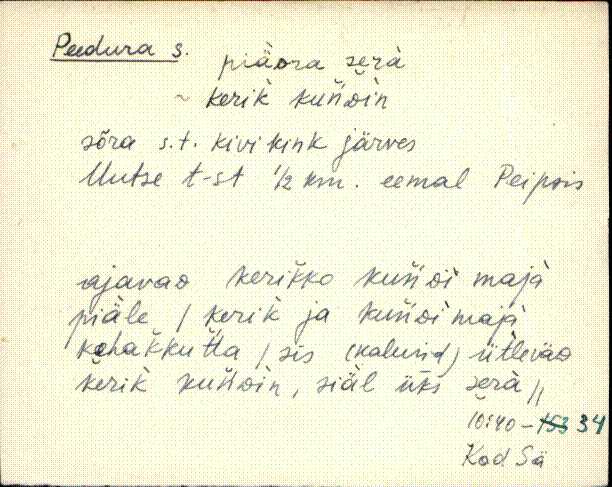 Peedura s. piäora serà
~ kerik kuňdin
sõra s.t. kivikink järves
Uutse t-st 1/2 km. eemal Peipsis
ajavad kerikko kuňdi majà
piäle / kerik ja kuňdi majà
kohakkutta / sis (kalurid) ütlevad
kerik kuňdin, siäl üks serà //
10:40 - 153 34
Kod Sä